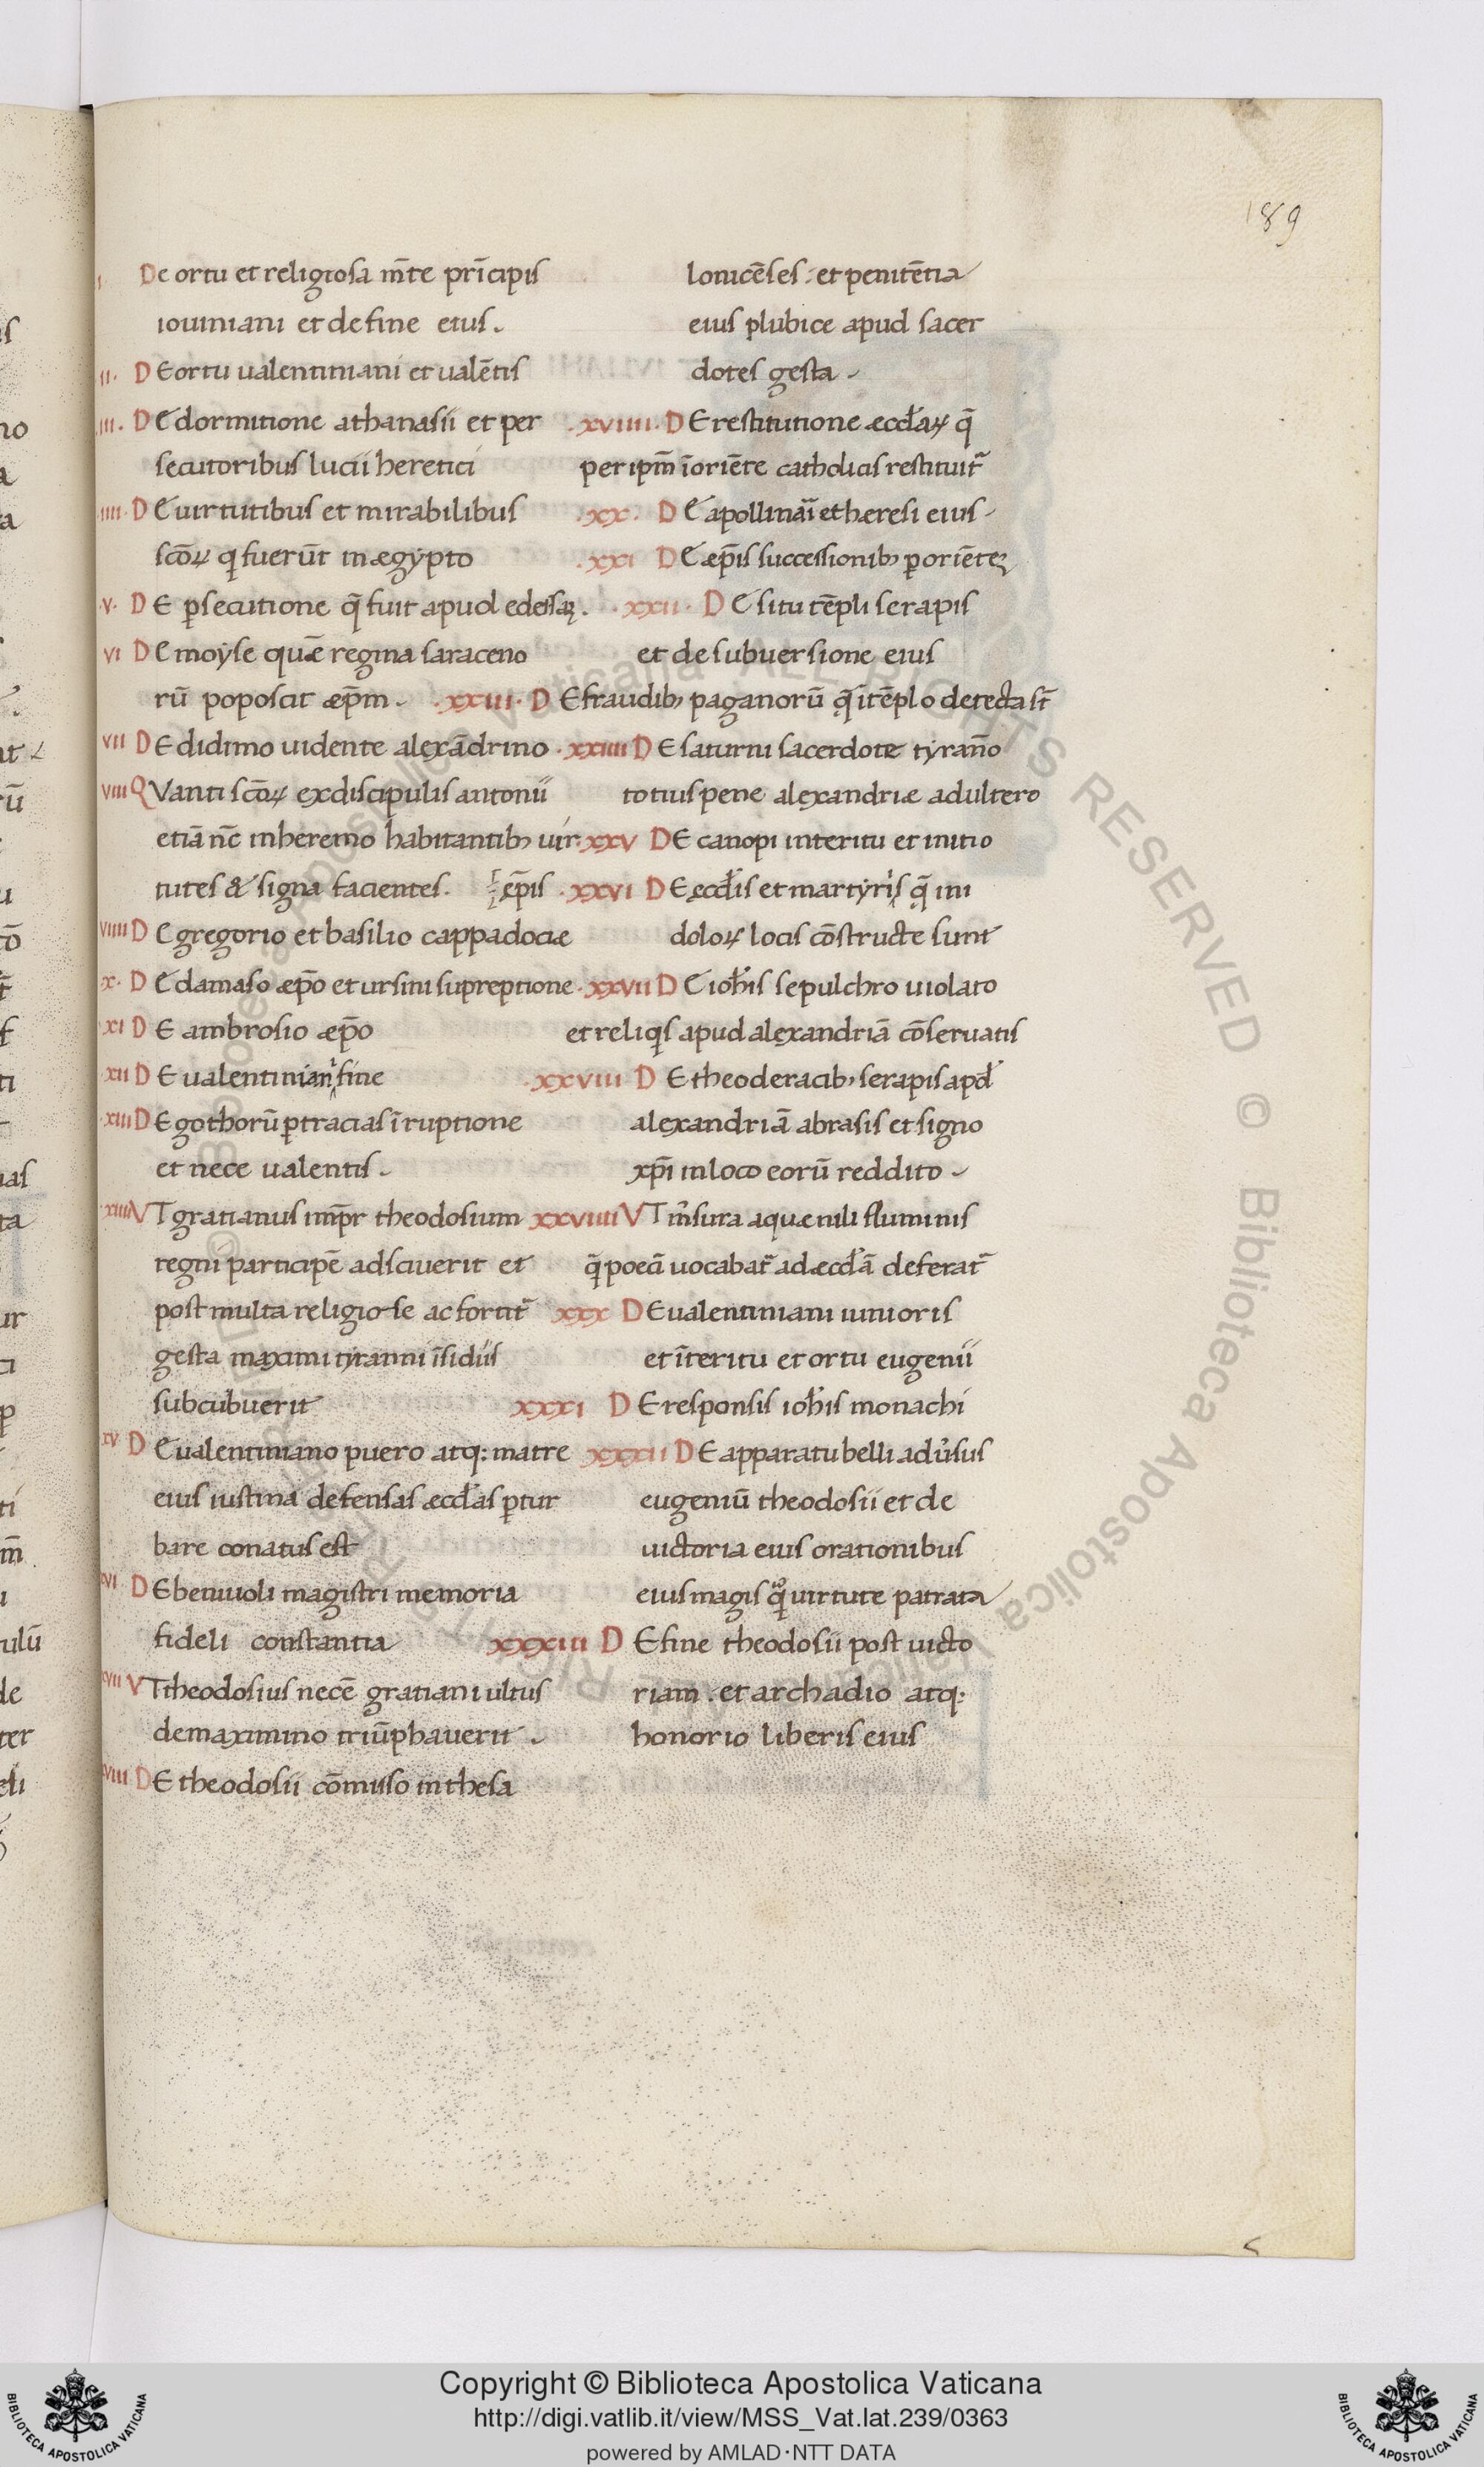 189
I De ortu et religiosa m̄te prīcipis
iouiniani et de fine eius.
II. DE ortu ualentiniani et ualētis
III. DE dormitione athanasii et per
secutoribus lucii heretici
IIII. DE uirtutibus et mirabilibus
scōꝝ qͥ fuerūt in ægypto
.V. DE ꝑsecutione q̄ fuit apud edessaꝫ.
VI DE moyse quē regina saraceno
rū poposcit æp̄m.
VII DE didimo uidente alexādrino
VIII QVanti scōꝝ ex discipulis antonii
etiā nc̄ in heremo habitantibꝫ uir
tutes & signa facientes.
VIIII DE gregorio et basilio cappadociæ ep̄is
.X. DE damaso æp̄o et ursini supreptione
XI DE ambrosio æp̄o
XII DE ualentiniani fine
XIII DE gothorū ꝑ tracias īruptione
et nece ualentis.
XIIII VT gratianus imp̄r theodosium
regni participē adsciuerit et
post multa religiose ac fortit̄
gesta maximi tyranni īsidiis
subcubuerit
XV DE ualentiniano puero atq: matre
eius iustina defensas æccl̄as ꝑtur
bare conatus est
XVI DE beniuoli magistri memoria
fideli constantia
XVII VT theodosius necē gratiani ultus
de maximino triūphauerit.
XVIII DE theodosii cōmisso in thesa
lonicēses: et penitētia
eius plubice apud sacer
dotes gesta.
.XVIIII. DE restitutione æccl̄aꝝ q̄
per ip̄m ī oriēte catholicis restituit̄
.XX. DE apollinari et hæresi eius
.XXI DE æp̄is successionibꝫ ꝑ oriēteꝫ
.XXII. DE situ tēpli serapis
et de subuersione eius
.XXIII. DE fraudibꝫ paganorū q̄ ī tēplo detecta st̄
.XXIIII DE saturni sacerdote tyrān̄o
totius pene alexandriæ adultero
.XXV DE canopi interitu et initio
.XXVI DE eccl̄is et martyriis q̄ in i
doloꝝ locis cōstructe sunt
.XXVII DE ioh̄is sepulchro uiolato
et reliqͥs apud alexandriā cōseruatis
.XXVIII DE theoderacibꝫ serapis apd̄
alexandriā abrasis et signo
xp̄i in loco eorū reddito.
XXVIIII VT m̄sura aquæ nili fluminis
q̄ poecī uocabat̄ ad æccl̄ā deferat̄
XXX DE ualentiniani iunioris
et īteritu et ortu eugenii
XXXI DE responsis ioh̄is monachi
XXXII DE apparatu belli adu̓sus
eugeniū theodosii et de
uictoria eius orationibus
eius magis qͣ uirtute patrata
XXXIII DE fine theodosii post uicto
riam. et archadio atq:
honorio liberis eius
Copyright © Biblioteca Apostolica Vaticana
http://digi.vatlib.it/view/MSS_Vat.lat.239/0363
powered by AMLAD·NTT DATA